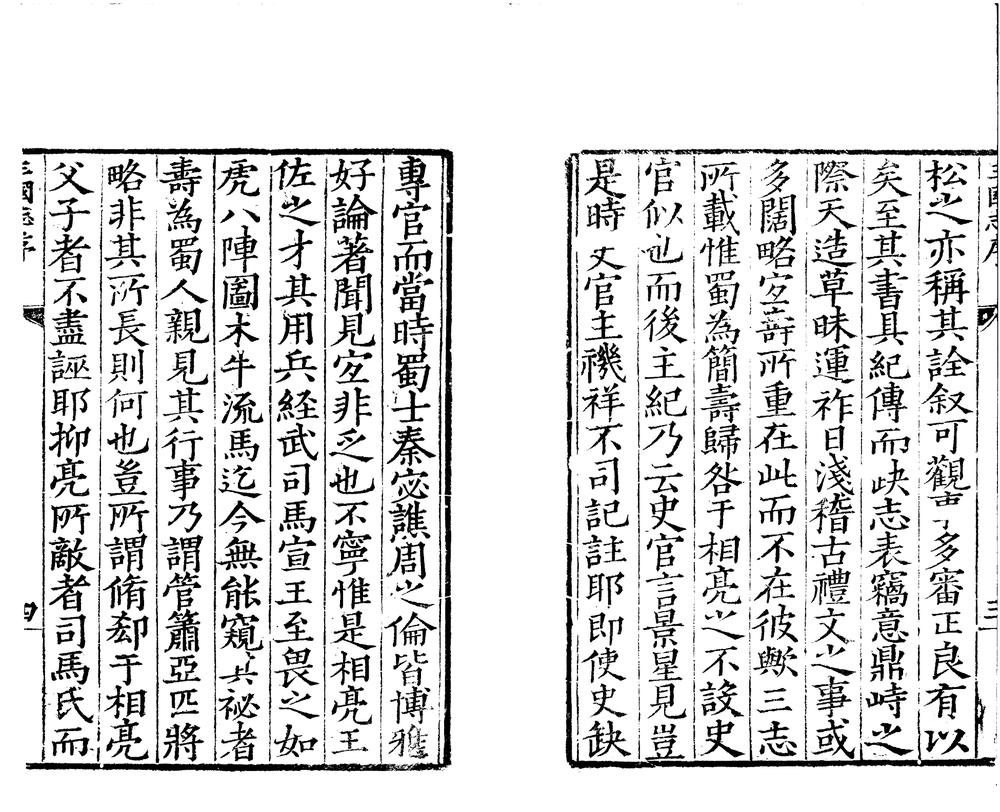 三國志序
三
松之亦稱其詮叙可觀事多審正良有以
矣至其書具紀傳而缺志表竊意鼎峙之
際天造草昧運祚日淺稽古禮文之事或
多闊略宜壽所重在此而不在彼歟三志
所載惟蜀為簡壽歸咎于相亮之不設史
官似也而後主紀乃云史官言景星見豈
是時史官主禨祥不司記註耶即使史缺
專官而當時蜀士秦宓譙周之倫皆博雅
好論著聞見宜非乏也不寧惟是相亮王
佐之才其用兵経武司馬宣王至畏之如
虎八陣圖木牛流馬迄今無能窺其祕者
壽為蜀人親見其行事乃謂管簫亞匹將
略非其所長則何也豈所謂脩郄于相亮
父子者不盡誣耶抑亮所敵者司馬氏而
三國志序
四